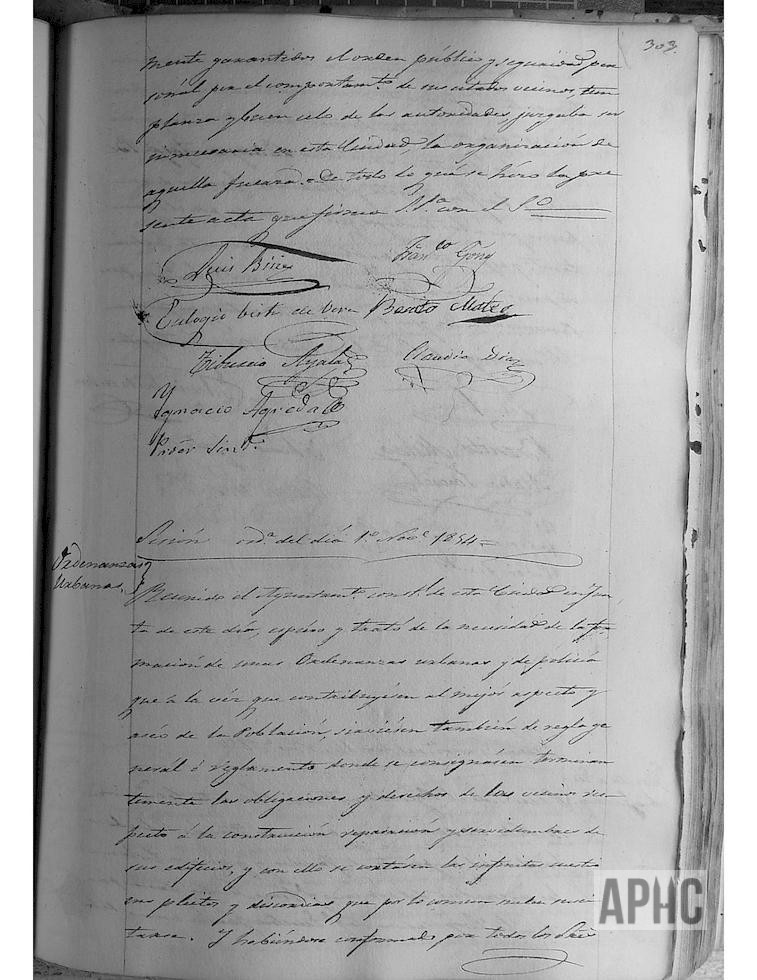 303.
mente garantidos el orden público y seguridad per
sonál por el comportamto. de sus citados vecinos, tem
planza y buen celo de las autoridades juzgaba se
innecesaria en esta Ciudad, la organización de
aquella fuerza. De todo lo qué se hizo la pre
sente acta que firma S.Sª con el Sº
Luis
Franco Goñy
Eulogio de Vera Benito Mateo
Tiburcio Ayala Claudio Diaz
Y
Ignacio Agreda
Prór Sindº.
Sesión ordª del día 1º. Nove. 1854=
Ordenanzas
Urbanas.
Reunido el Ayuntamto. constl. de esta Ciudad en Jun
ta de este día, espuso y trató de la necesidad de la for
mación de unas Ordenanzas urbanas y de policía
que á la véz que contribuyésen al mejór aspecto y
aséo de la Población, sirviésen también de regla ge
nerál ó réglamento donde se consignásen terminan
temente las obligaciones y derechos de los vecinos res
pecto á la construcción reparación y servidumbres de
sus edificios, y con ello se cortásen las infinitas cuestio
nes pleitos y discordias que por lo común suelen susci
tarse. Y habiéndose conformado por todos los Sres
APHC